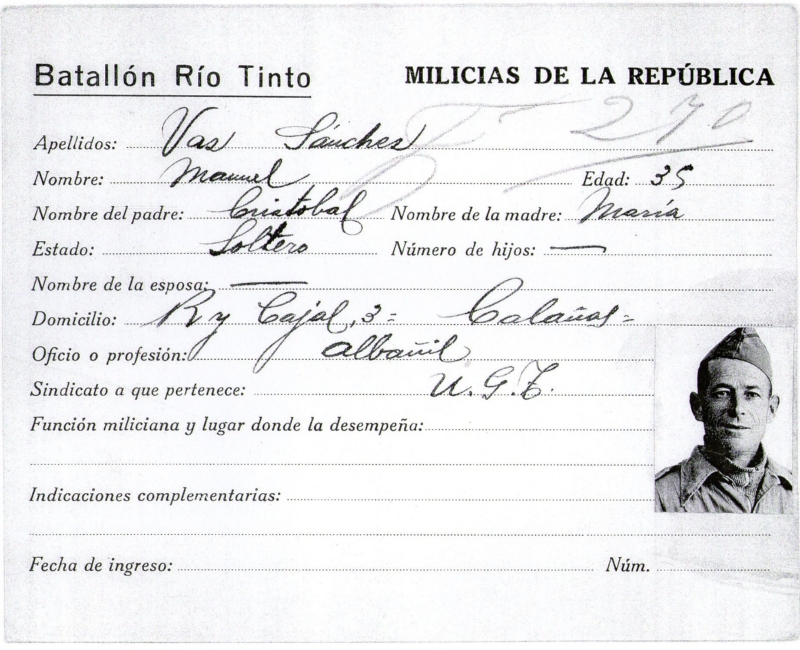 Batallón Río Tinto MILICIAS DE LA REPÚBLICA
270
Apellidos: Vas Sánches
Nombre: Manuel Edad: 35
Nombre del padre: Cristobal Nombre de la madre: María
Estado: Soltero Número de hijos: —
Nombre de la esposa: —
Domicilio: R y Cajal, 3 = Calañas =
Oficio o profesión: albañil
Sindicato a que pertenece: U.G.T.
Función miliciana y lugar donde la desempeña:
Indicaciones complementarias:
Fecha de ingreso: Núm.